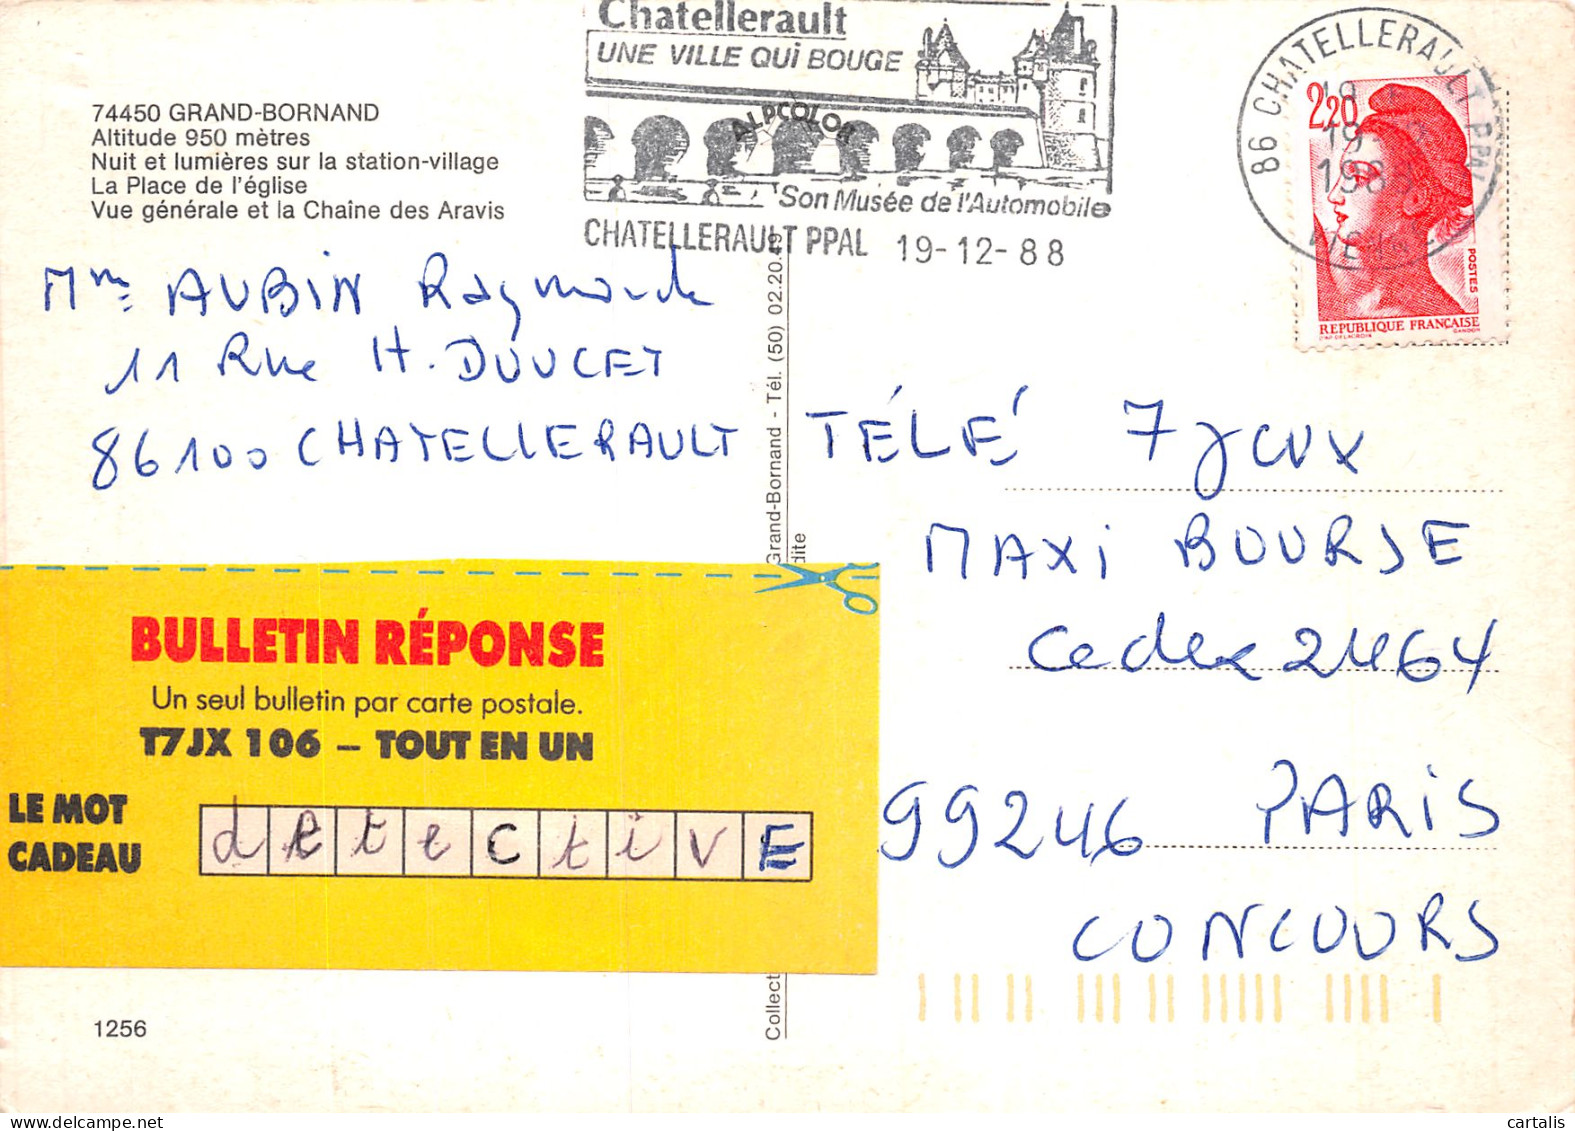 Chatellerault
UNE VILLE QUi BOUGE
ALPCOLOR
Son Musée de l'Automobile
CHATELLERAULT PPAL 19-12-88
86 CHATELLERAULT PPAL
19
198
2,20
POSTES
REPUBLIQUE FRANÇAISE
74450 GRAND-BORNAND
Altitude 950 mètres
Nuit et lumières sur la station-village
La Place de l'église
Vue générale et la Chaîne des Aravis
Mme AUBIN Raymonde
11 Rue H. DOUCET
86100 CHATELLERAULT
Grand-Bornand - Tél. (50) 02.20.49
dite
Collect
TÉLÉ 7 jeux
MAXi BOURSE
Cedex 2464
99246 PARiS
CONCOURS
BULLETIN RÉPONSE
Un seul bulletin par carte postale.
T7JX 106 – TOUT EN UN
LE MOT
CADEAU
detectivE
1256
cartalis